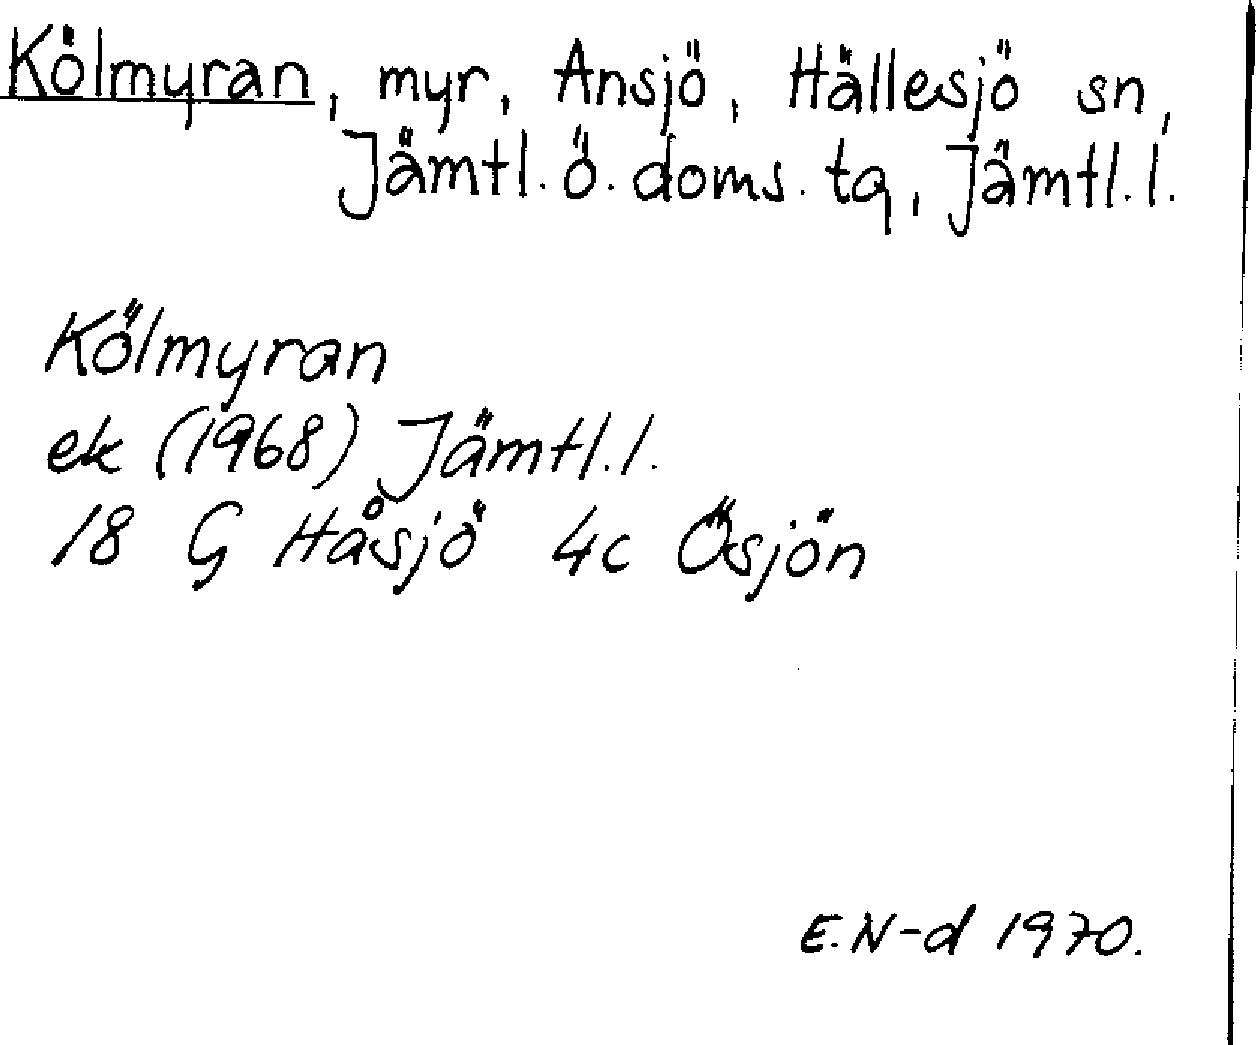 Kölmyran, myr, Ansjö, Hällesjö sn,
Jämtl. ö. doms. tq, Jämtl. l.
Kölmyran
ek (1968) Jämtl. l.
18 G Håsjö 4c Ösjön
E. N-d 1970.